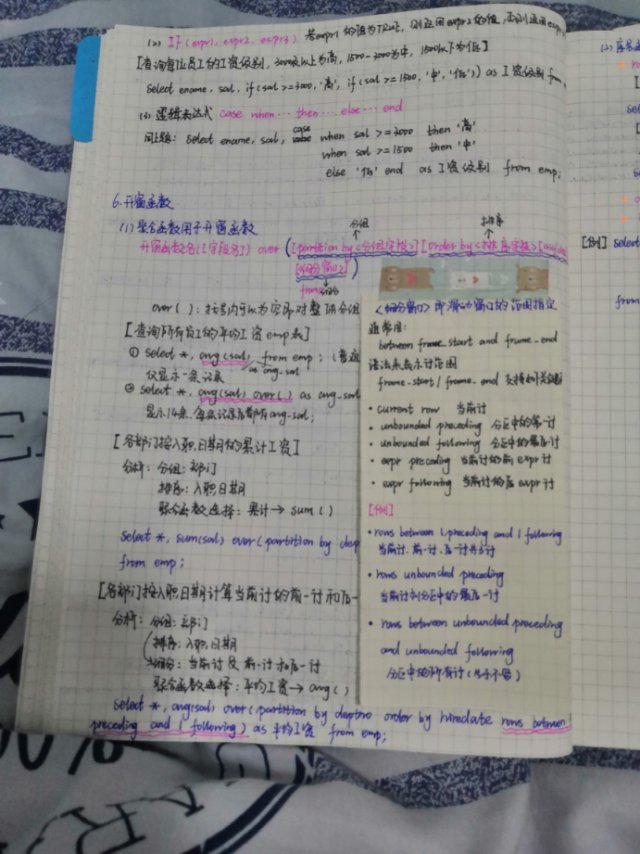 (2) IF(expr1, expr2, expr3) 若expr1的值为TRUE, 则返回expr2的值, 否则返回expr3
[查询每位员工的工资级别, 3000及以上为高, 1500-3000为中, 1500以下为低]
select ename, sal, if(sal>=3000, '高', if(sal>=1500, '中', '低')) as 工资级别 from
(3) 逻辑表达式 case when … then … else … end
同上题: select ename, sal, case when sal>=3000 then '高'
when sal>=1500 then '中'
else '低' end as 工资级别 from emp;
6. 开窗函数
(1) 聚合函数用于开窗函数
分组 排序
开窗函数名([字段名]) over ([partition by <分组字段>] [order by <排序字段>]
[<细分窗口>])
over(): 括号内可以为空即对整体分组
[查询所有员工的平均工资 emp表]
① select *, avg(sal) as avg_sal from emp; (普通
仅显示一条记录
② select *, avg(sal) over() as avg_sal
显示14条, 每条记录后都有avg_sal;
[各部门按入职日期的累计工资]
分析: 分组: 部门
排序: 入职日期
聚合函数选择: 累计→sum()
select *, sum(sal) over(partition by dep
from emp;
[各部门按入职日期计算当前行的前一行和后一
分析: 分组: 部门
排序: 入职日期
细分: 当前行及前一行和后一行
聚合函数选择: 平均工资→avg()
select *, avg(sal) over(partition by deptno order by hiredate rows between
preceding and 1 following) as 平均工资 from emp;
<细分窗口> 即滑动窗口的范围指定
通常用:
between frame_start and frame_end
语法来表示行范围
frame_start / frame_end 支持如下关键字
• current row 当前行
• unbounded preceding 分区中的第一行
• unbounded following 分区中的最后一行
• expr preceding 当前行的前expr行
• expr following 当前行的后expr行
[例]
• rows between 1 preceding and 1 following
当前行、前一行、后一行共3行
• rows unbounded preceding
当前行到分区中的第一行
• rows between unbounded preceding
and unbounded following
分区中的所有行
[例] select